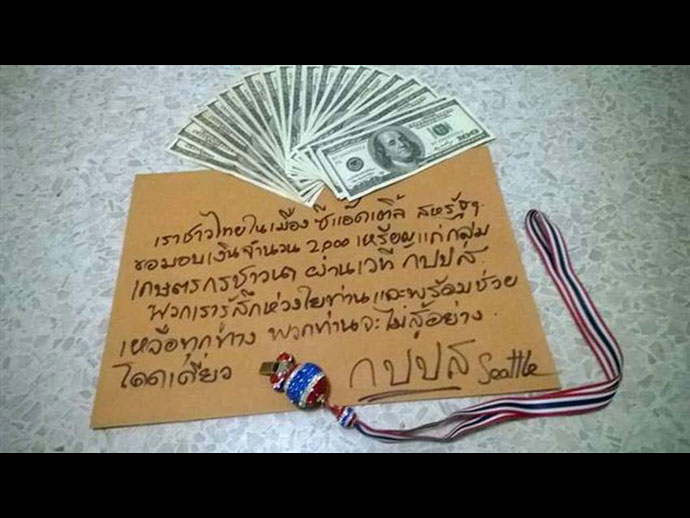 100
เราชาวไทยในเมือง ซีแอ๊ตเติ้ล สหรัฐฯ
ขอมอบเงินจำนวน 2,000 เหรียญแก่กลุ่ม
เกษตรกรชาวนา ผ่านเวที กปปส.
พวกเรารู้สึกห่วงใยท่านและพร้อมช่วย
เหลือทุกทาง พวกท่านจะไม่สู้อย่าง
โดดเดี่ยว
กปปส Seattle